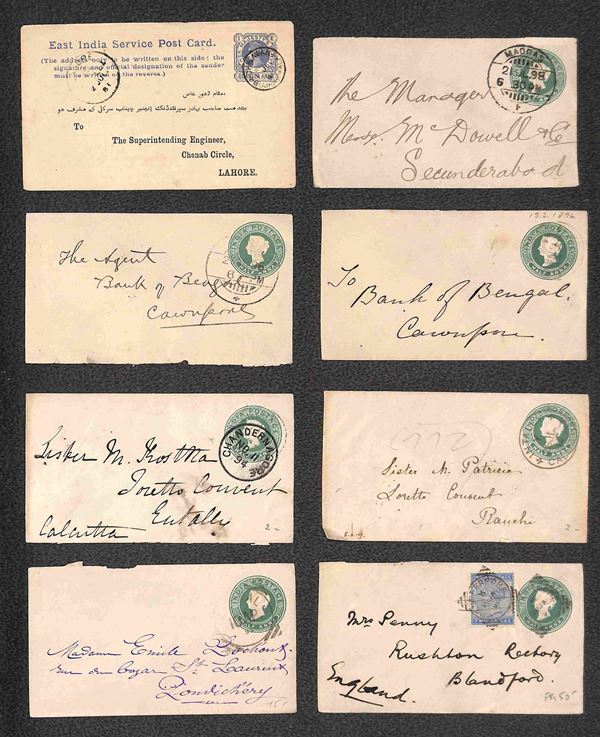 East India Service Post Card.
(The address only to be written on this side; the
signature and official designation of the sender
must be written on the reverse.)
بمقام لاهور خاص
To
The Superintending Engineer,
Chenab Circle,
LAHORE.
MADRAS
98
6 30 PM
The Manager
Messrs McDowell & Co
Secunderabad
INDIA POSTAGE
HALF ANNA
The Agent
Bank of Bengal
Cawnpore
13.3.1896
INDIA POSTAGE
HALF ANNA
To
Bank of Bengal.
Cawnpore.
CHANDERNAGORE
NO. 11
94
Sister M.
Loretto Convent
Entally
Calcutta
2-
(112)
HALF ANNA
Sister M. Patricia
Loretto Convent
Ranchi
2-
INDIA POSTAGE
Madame Emile
rue du Bazar St Laurent
Pondichéry
75
Mrs Penny
Rushton Rectory
Blandford
England.